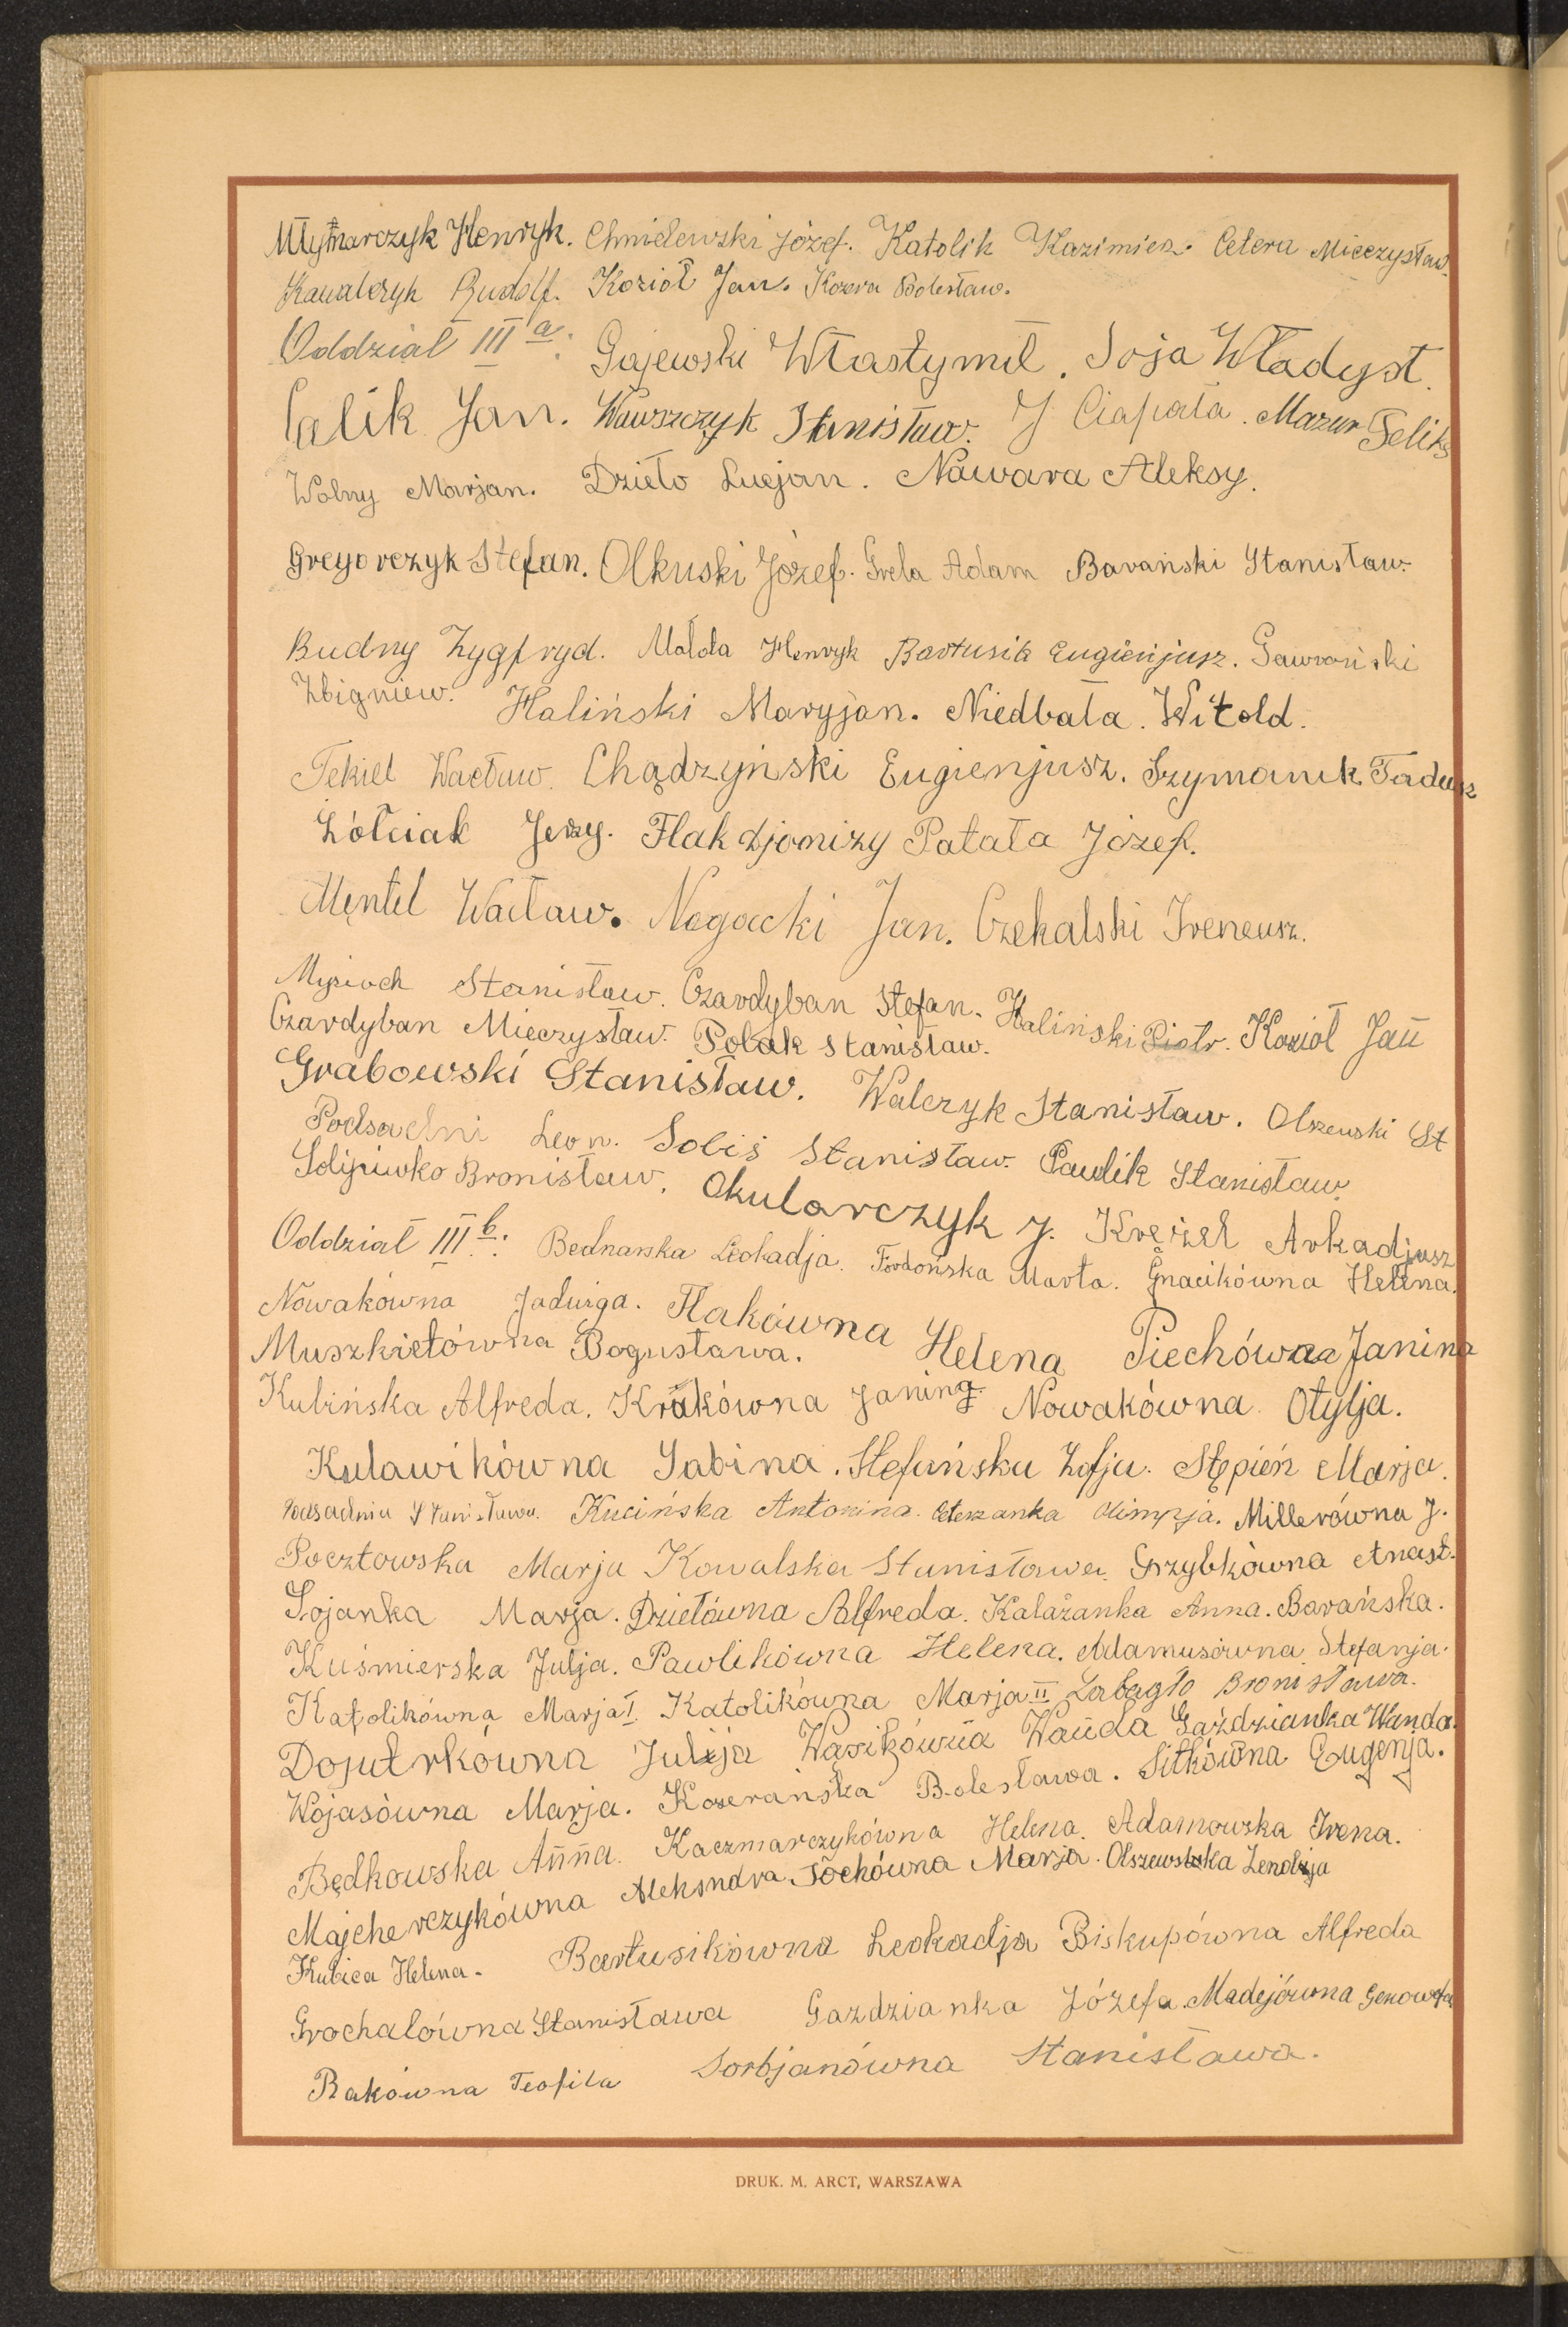 Młynarczyk Henryk. Chmielewski Józef. Katolik Kazimierz. Cetera Mieczysław.
Kawalczyk Rudolf. Kozioł Jan. Kozera Bolesław.
Oddział III a: Gajewski Włastymił. Soja Władysł.
Calik Jan. Wawszczyk Stanisław. J Ciapała. Mazur Feliks
Wolny Marjan. Dzieło Lucjan. Nawara Aleksy.
Gregorczyk Stefan. Olkuski Józef. Grela Adam Barański Stanisław.
Budny Zygfryd. Małota Henryk Bartusik Eugienjusz. Gawroński
Zbigniew. Haliński Maryjan. Niedbała. Witold.
Tekiel Wacław. Chądzyński Eugienjusz. Szymanik Tadeusz
Żółciak Jerzy. Flak Djonizy Patała Józef.
Mentel Wacław. Nogacki Jan. Czekalski Ireneusz.
Stanisław. Czardyban Stefan. Haliński Piotr. Kozioł Jan
Czardyban Mieczysław. Polak Stanisław.
Grabowski Stanisław. Walczyk Stanisław. Olszewski St
Podsadni Leon. Sobiś Stanisław. Pawlik Stanisław.
Bronisław. Okularczyk J. Krężel Arkadjusz
Oddział III b: Bednarska Leokadja. Fordońska Marta. Gnacikówna Helena.
Nowakówna Jadwiga. Flakówna Helena Piechówna Janina
Muszkietówna Bogusława.
Kubińska Alfreda. Krakówna Janina Nowakówna Otylja.
Kulawikówna Sabina. Stefańska Zofja. Stępień Marja.
Podsadnia Stanisława. Kucińska Antonina. Ceterzanka Olimpja. Millerówna J.
Pocztowska Marja Kowalska Stanisława. Grzybkówna Anast.
Sojanka Marja. Dziełówna Alfreda. Kalażanka Anna. Barańska.
Kuśmierska Julja. Pawlikówna Helena. Adamusówna Stefanja.
Katolikówna Marja I. Katolikówna Marja II Łabągło Bronisława.
Doputrkówna Julija Wąsikówna Wanda Gaździanka Wanda.
Wojasówna Marja. Kozerańska Bolesława. Sitkówna Eugenja.
Będkowska Anna. Kaczmarczykówna Helena. Adamowska Irena.
Majcherczykówna Aleksndra Sochówna Marja. Olszewska Zenobja
Kubica Helena. Bartusikówna Leokadja Biskupówna Alfreda
Grochalówna Stanisława Gazdzianka Józefa Madejówna Genowefa
Rakówna Teofila Sorbjanówna Stanisława.
DRUK. M. ARCT, WARSZAWA